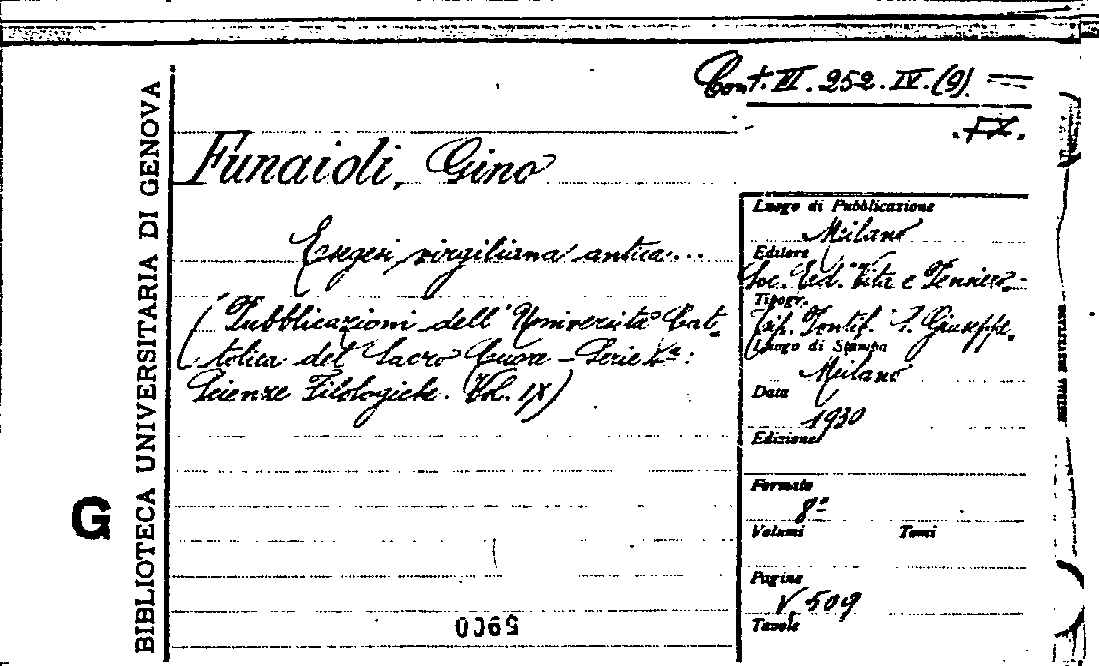 Cont. VI. 252. IV. (9).
Funaioli, Gino
Esegesi virgiliana antica...
(Pubblicazioni dell'Università Cat-
tolica del Sacro Cuore - Serie Va:
Scienze Filologiche. Vol. IX)
Luogo di Pubblicazione
Milano
Editore
Soc. Ed. "Vita e Pensiero"
Tipogr.
Tip. Pontif. S. Giuseppe.
Luogo di Stampa
Milano
Data
1930
Edizione
Formato
8º
Volumi Tomi
Pagine
V, 509
Tavole
BIBLIOTECA UNIVERSITARIA DI GENOVA
G